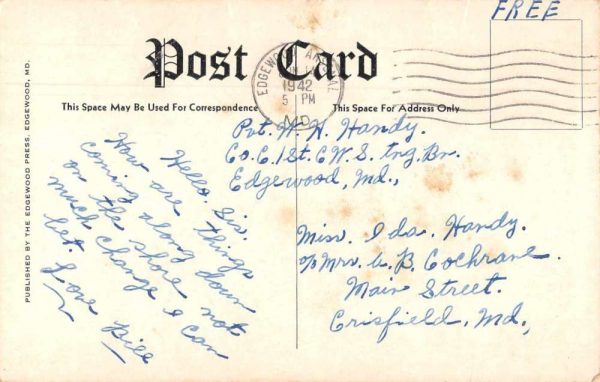 FREE
Post Card
EDGEWOOD ARSENAL
1942
5 PM
MD.
This Space May Be Used For Correspondence
This Space For Address Only
PUBLISHED BY THE EDGEWOOD PRESS, EDGEWOOD, MD.
Hello, Sis.
How are things
coming along down
on the shore not
much change I can
bet. Love Bill
Pvt. W. H. Handy.
Co. C. 1st. C.W.S. Tng. Bn.
Edgewood, Md.,
Miss. Ida. Handy.
c/o Mrs. A. B. Cochrane.
Main Street.
Crisfield, Md.,